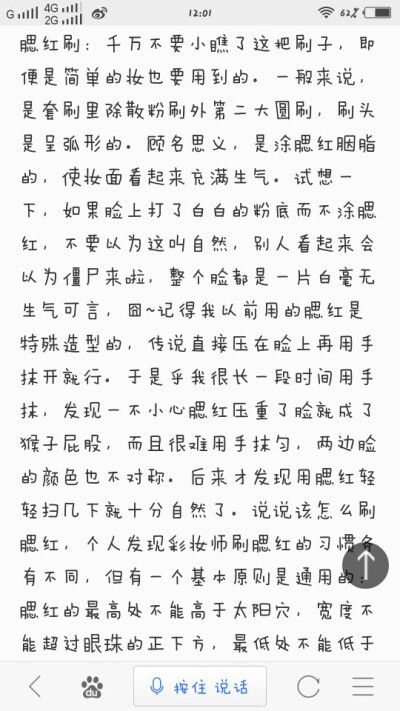 G 4G 2G 12:01 62%
腮红刷：千万不要小瞧了这把刷子，即
便是简单的妆也要用到的。一般来说，
是套刷里除散粉刷外第二大圆刷，刷头
是呈弧形的。顾名思义，是涂腮红胭脂
的，使妆面看起来充满生气。试想一
下，如果脸上打了白白的粉底而不涂腮
红，不要以为这叫自然，别人看起来会
以为僵尸来啦，整个脸都是一片白毫无
生气可言，囧~记得我以前用的腮红是
特殊造型的，传说直接压在脸上再用手
抹开就行。于是乎我很长一段时间用手
抹，发现一不小心腮红压重了脸就成了
猴子屁股，而且很难用手抹匀，两边脸
的颜色也不对称。后来才发现用腮红轻
轻扫几下就十分自然了。说说该怎么刷
腮红，个人发现彩妆师刷腮红的习惯各
有不同，但有一个基本原则是通用的：
腮红的最高处不能高于太阳穴，宽度不
能超过眼珠的正下方，最低处不能低于
du 按住 说话